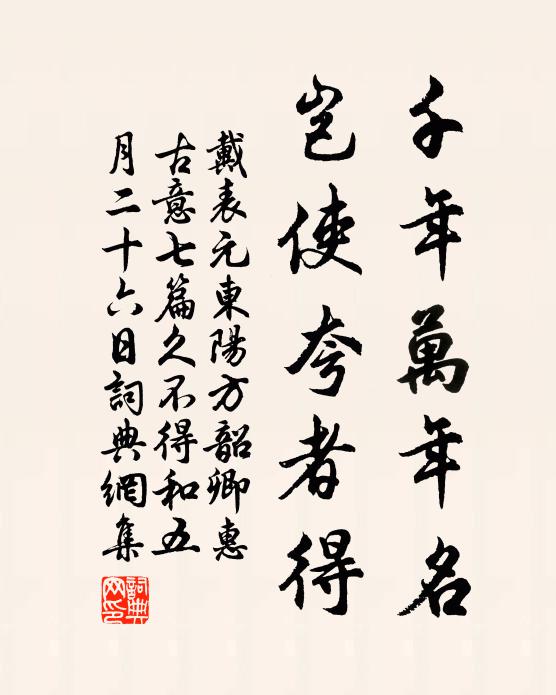 千年萬年名
豈使夸者得
戴表元東陽方韶卿惠
古意七篇久不得和五
月二十六日詞典網集
詞典
网印